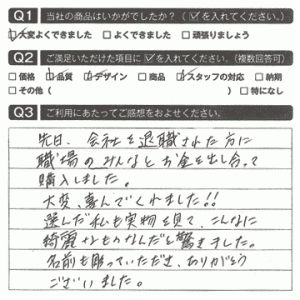 Q1 当社の商品はいかがでしたか?(☑を入れてください。)
☑大変よくできました □よくできました □頑張りましょう
Q2 ご満足いただけた項目に☑を入れてください。(複数回答可)
□価格 ☑品質 ☑デザイン □商品 ☑スタッフの対応 □納期
□その他( ) □特になし
Q3 ご利用にあたってご感想をおよせください。
先日、会社を退職された方に
職場のみんなとお金を出し合って
購入しました。
大変、喜んでくれました!!
選んだ私も実物を見て、こんなに
綺麗なものなんだと驚きました。
名前も彫っていただき、ありがとう
ございました。